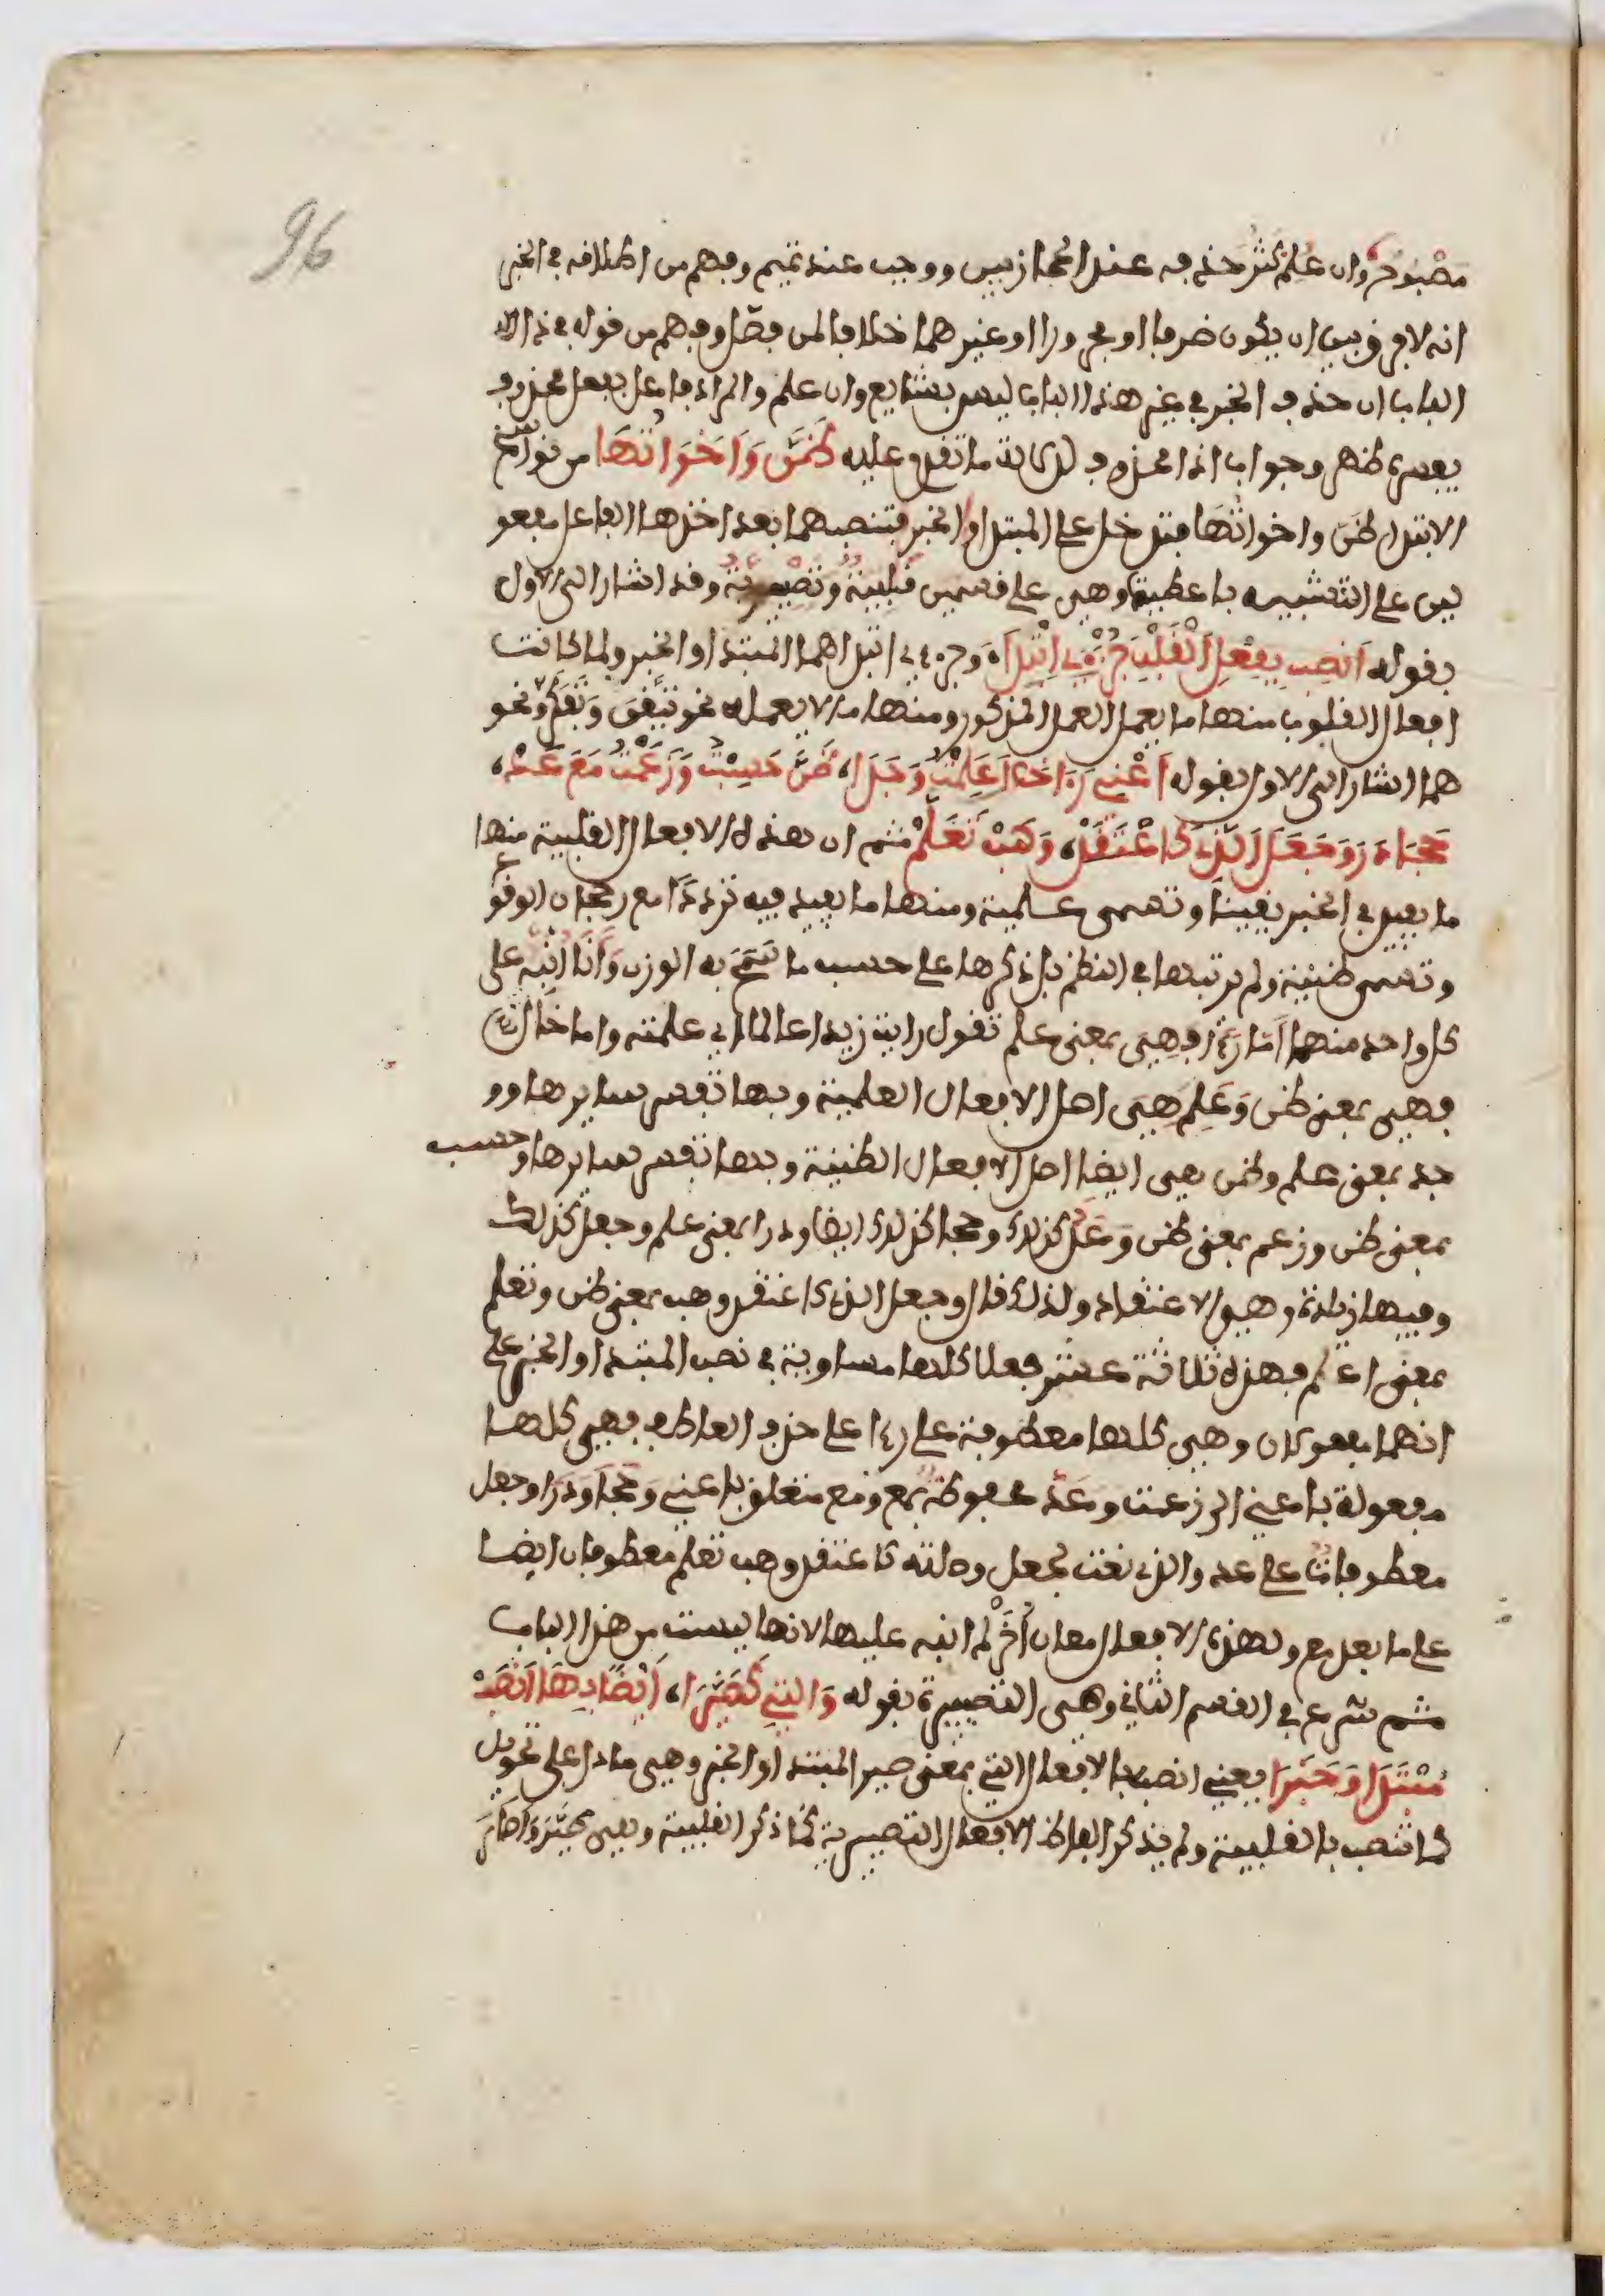 96
مصْبُوحُ وان عُلم كثُر حذفه عند الحجازيين ووجب عند تميم وفهم من اطلاقه في الخبر
انه لا فرق بين ان يكون ظرفا او مجرورا او غيرهما خلافا لمن فصّل وفهم من قوله في ذا
الباب ان حذف الخبر في غير هذا الباب ليس بشايع وان علم والمراد فاعل بفعل محذوف
يفسره ظهر وجواب اذا محذوف لدلالة ما تقدم عليه ظَنَّ وَأَخَوَاتُهَا من نواسخ
الابتدا ظن واخواتُهَا فتدخل على المبتدا والخبر فتنصبهما بعد اخذها الفاعل مفعو
لين على التشبيه باعطيت وهي على قسمين قلبيةٌ وتصْييريّةٌ وقد اشار الى الاول
بقوله اَنصِب بِفِعْلِ اَلْقَلْبِ جُزْءَيِ اِبْتِدَاء وجزءي ابتدا هما المبتدا والخبر ولما كانت
افعال القلوب منها ما يعمل العمل المذكور ومنها ما لا يعمله نحو تيَقّنَ وَتَفَكّرَ ونحو
هما اشار الى الاول بقوله اَعْنِي رَءَا خَالَ عَلِمْتُ وَجَدَا، ظَنَّ حَسِبْتُ وَزَعَمْتُ مَعَ عَدّ،
حَجَا دَرَى وَجَعَلَ اَلَّذْ كَاعْتَقَدْ، وَهَبْ تَعَلَّمْ ثم ان هذه الافعال القلبية منها
ما يفيد في الخبر يقيناً وتسمى علمية ومنها ما يفيد فيه تردداً مع رجحان الوقوع
وتسمى ظنية ولم يرتبها في النظم بل ذكرها على حسب ما سَمَحَ به الوزن وَأَنَا انبّه على
كل واحد منها اَمّا رَءَا فهِيَ بمعنى علم تقول رايت زيدا عالما اي علمته واما خَالَ
فهي بمعنى ظن وَعَلِمَ هِيَ اصل الافعال العلمية وبها تفسر سايرها وو
جد بمعنى علم وظن هي ايضا اصل الافعال الظنية وبها تفسر سايرها وحسب
بمعنى ظن وزعم بمعنى ظن وَعَدّ كذلك وحجا كذلك ايضا ودرا بمعنى علم وجعل كذلك
وفيها زيادة وهي الاعتقاد ولذلك قال وجعل الذ كاعتقد وهب بمعنى ظن وتعلم
بمعنى اعلم فهذه ثلاثة عشر فعلا كلها مساوية في نصب المبتدا والخبر على
انهما مفعولان وهي كلها معطوفة على رءا على حذف العاطف وهي كلها
مفعولة باعني الى زعمت وعَدّ مخفوظة بمع ومع متعلق باعني وَحَجَا وَدَرَا وجعل
معطوفات على عد والذ نعت لجعل وصلته كاعتقد وهب تعلم معطوفان ايضا
على ما بعد مع ولهذه الافعال معان أُخَرْ لم انبه عليها لانها ليست من هذا الباب
ثم شرع في القسم الثاني وهي التصييرية بقوله وَالَّتِي كَصَيَّرَا، اَيْضًا بِهَا اَنْصِبْ
مُبْتَدَا وَخَبَرَا يعني انصب بالافعال التي بمعنى صير المبتدا والخبر وهي ما دل على تحويل
كما تنصب بالقلبية ولم يذكر الفاظ الافعال التصييرية كما ذكر القلبية وهي صَيَّرَ وَأَصَارَ